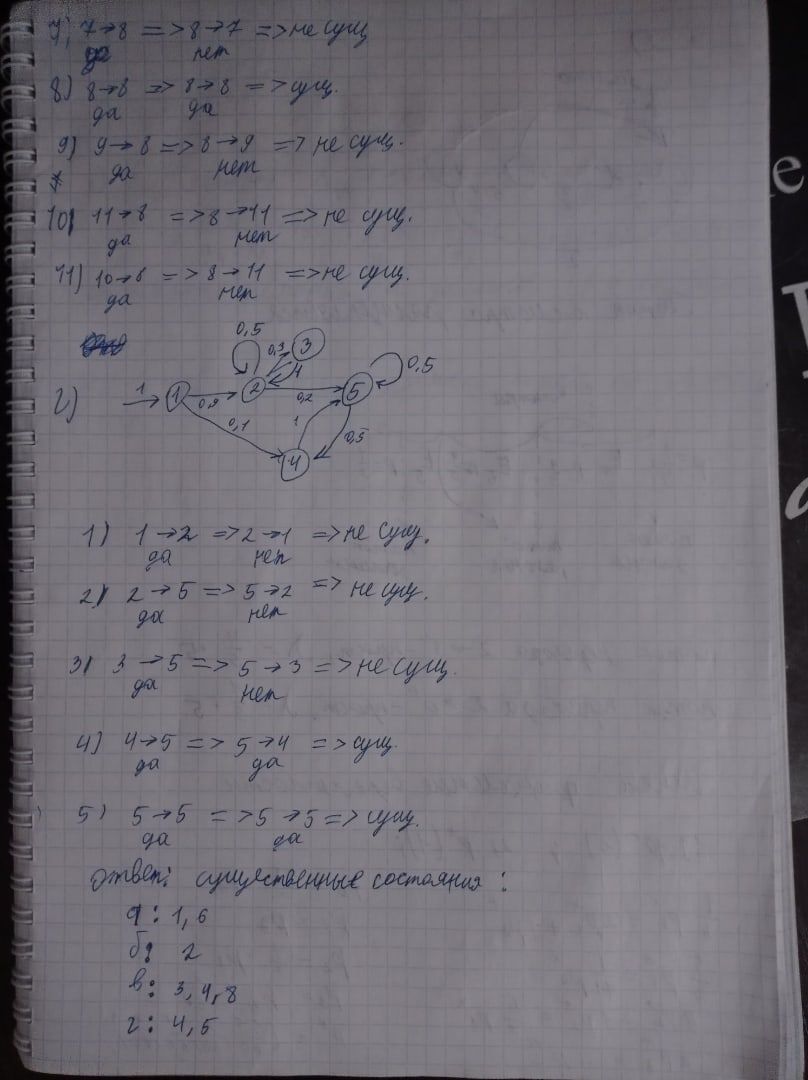 7) 7→8 => 8→7 => не сущ
да нет
8) 8→8 => 8→8 => сущ.
да да
9) 9→8 => 8→9 => не сущ.
да нет
10) 11→8 => 8→11 => не сущ.
да нет
11) 10→8 => 8→11 => не сущ.
да нет
0,5
0,3 3
1 1 2 1 5 0,5
г) 0,9 0,2
0,1 1 0,5
4
1) 1→2 => 2→1 => не сущ.
да нет
2) 2→5 => 5→2 => не сущ.
да нет
3) 3→5 => 5→3 => не сущ.
да нет
4) 4→5 => 5→4 => сущ.
да да
5) 5→5 => 5→5 => сущ.
да да
Ответ: существенные состояния:
а: 1, 6
б: 2
в: 3, 4, 8
г: 4, 5